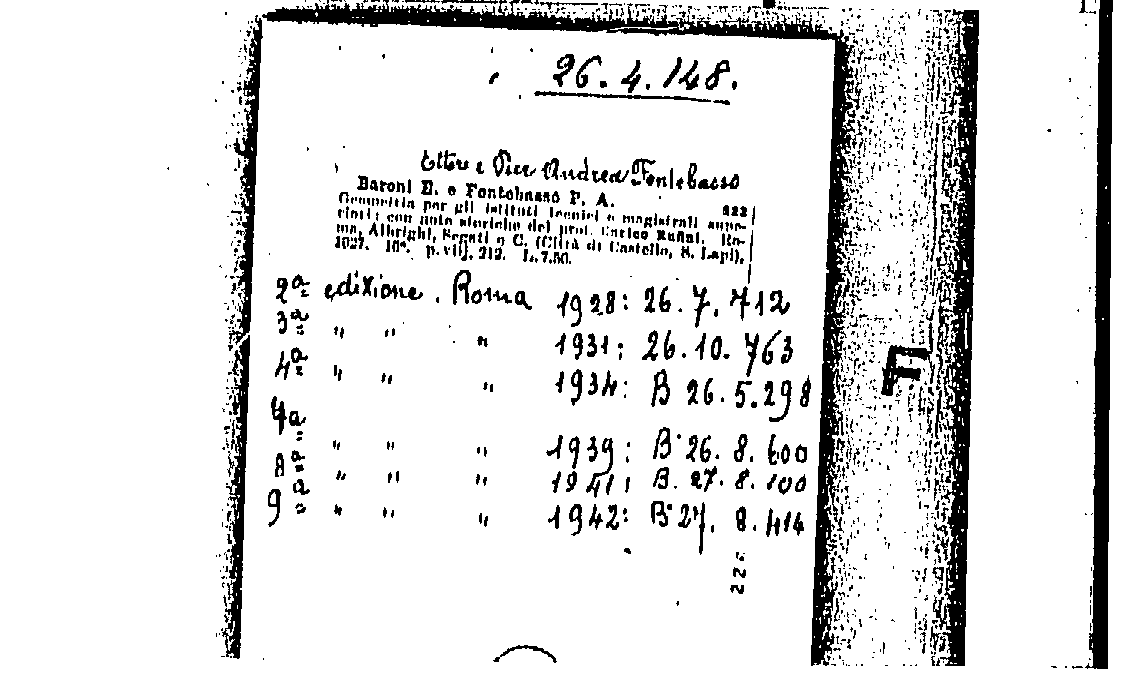 26.4.148.
Ettore e Pier Andrea Fontebasso
Baroni E. e Fontebasso P. A.
Geometria per gli istituti tecnici e magistrali supe-
riori; con note storiche del prof. Enrico Rufini. Ro-
ma, Albrighi, Segati e C. (Città di Castello, S. Lapi),
1927. 16°. p. viij, 212. L. 7.50.
2ª edizione. Roma 1928: 26.7.712
3ª " " " 1931: 26.10.763
4ª " " " 1934: B 26.5.298
7ª " " " 1939: B 26.8.600
8ª " " " 1941: B. 27.8.100
9ª " " " 1942: B 27.8.414
F